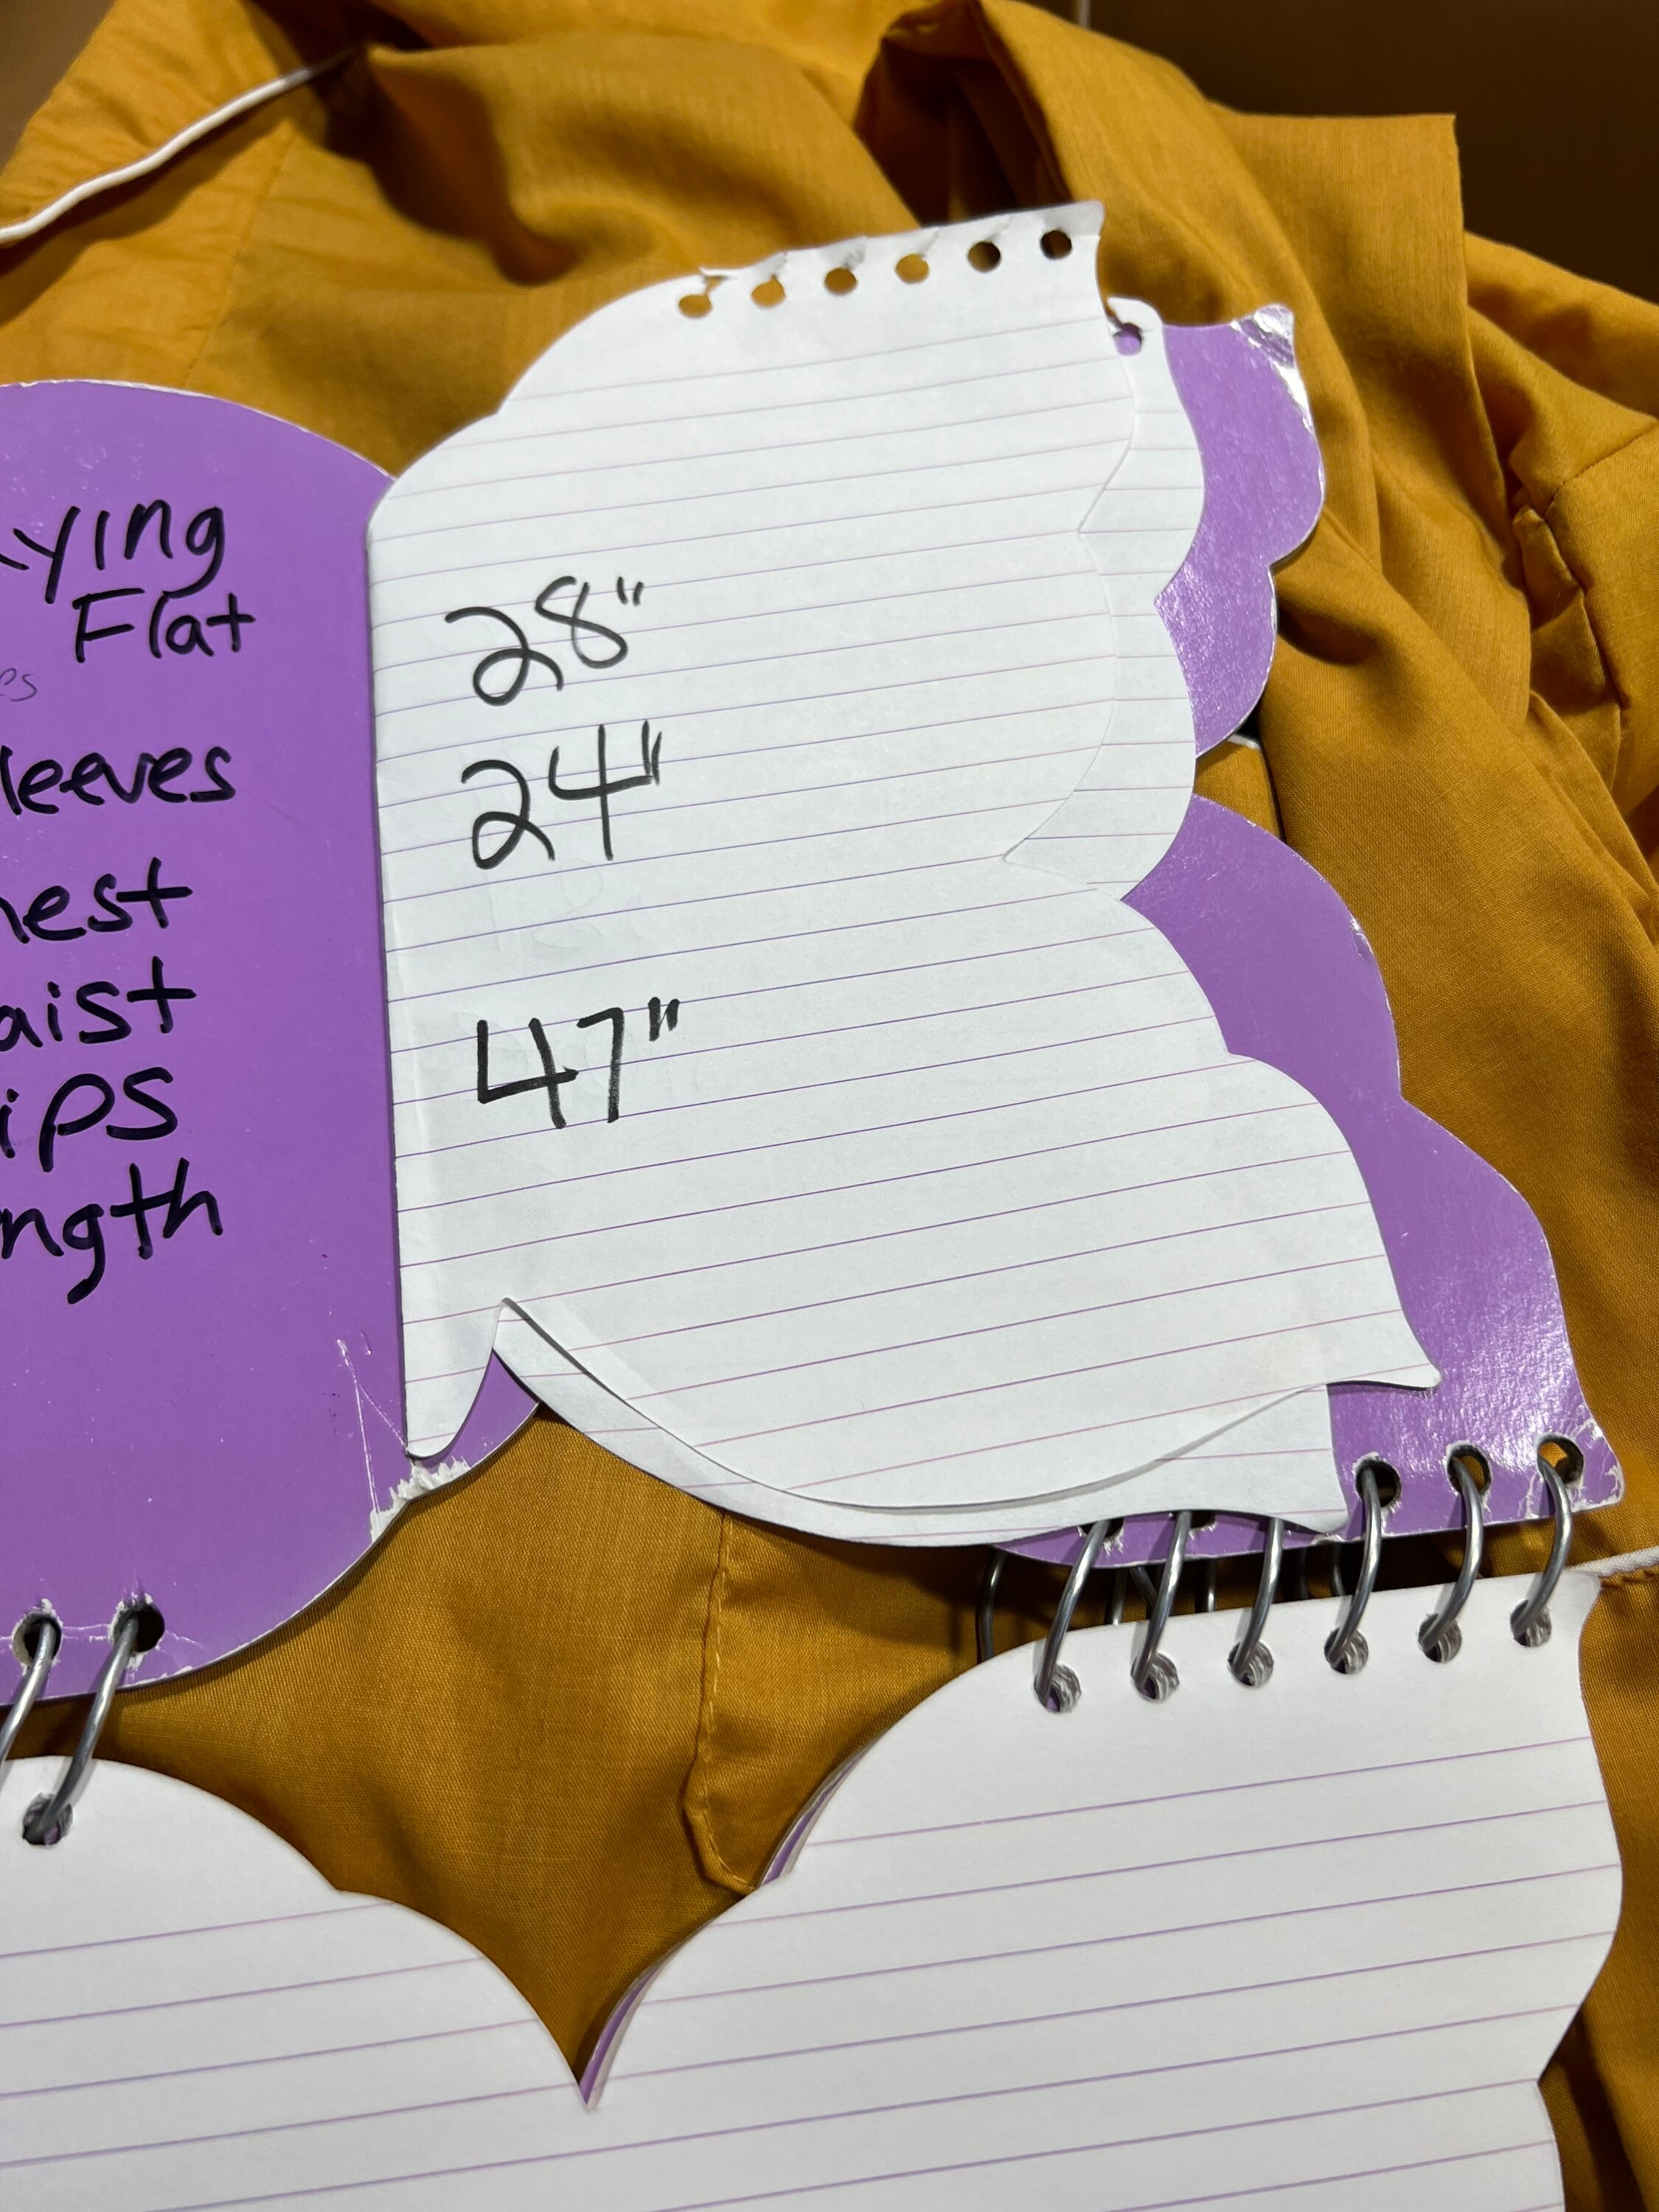 ying
Flat
es
leeves
hest
aist
ips
ngth
28"
24"
47"